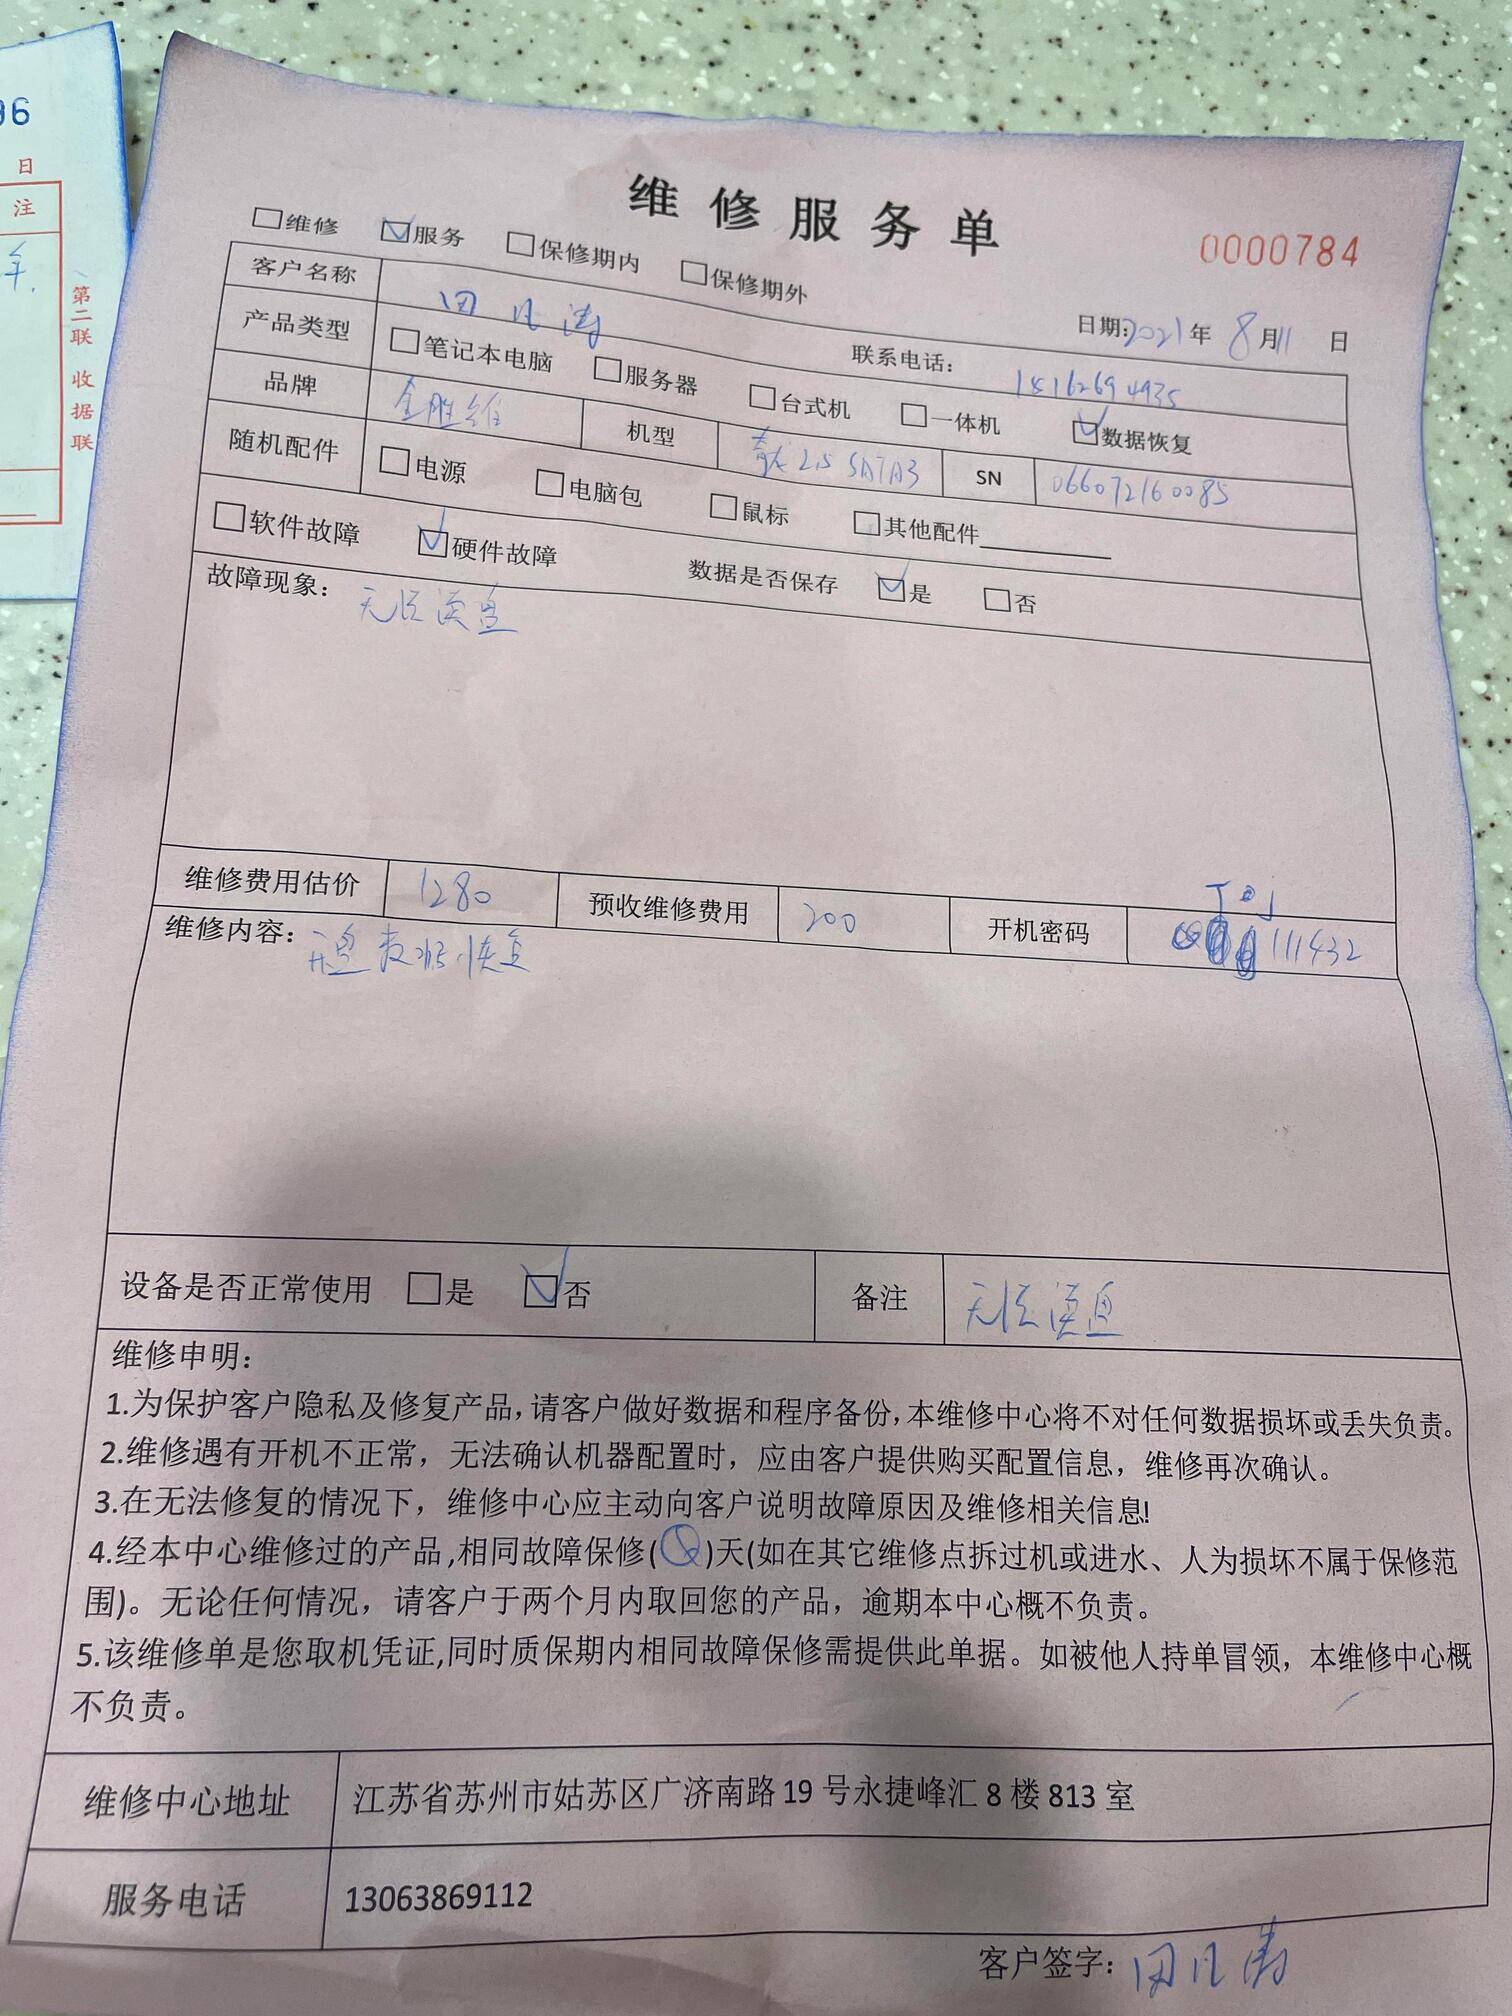 96
日
注
年.
第二联 收据联
维修服务单
0000784
维修 服务 保修期内 保修期外
日期: 2021年 8月11 日
客户名称 田凡涛 联系电话: 15162694935
产品类型 笔记本电脑 服务器 台式机 一体机 数据恢复
品牌 金胜维 机型 2.5 SATA3 SN 066072160085
随机配件 电源 电脑包 鼠标 其他配件
软件故障 硬件故障 数据是否保存 是 否
故障现象: 无法读盘
维修费用估价 1280 预收维修费用 200 开机密码 111432
维修内容: 开盘数据恢复
设备是否正常使用 是 否 备注 无法读盘
维修申明:
1.为保护客户隐私及修复产品,请客户做好数据和程序备份,本维修中心将不对任何数据损坏或丢失负责。
2.维修遇有开机不正常，无法确认机器配置时，应由客户提供购买配置信息，维修再次确认。
3.在无法修复的情况下，维修中心应主动向客户说明故障原因及维修相关信息!
4.经本中心维修过的产品,相同故障保修( )天(如在其它维修点拆过机或进水、人为损坏不属于保修范
围)。无论任何情况，请客户于两个月内取回您的产品，逾期本中心概不负责。
5.该维修单是您取机凭证,同时质保期内相同故障保修需提供此单据。如被他人持单冒领，本维修中心概
不负责。
维修中心地址 江苏省苏州市姑苏区广济南路19号永捷峰汇8楼813室
服务电话 13063869112
客户签字: 田凡涛